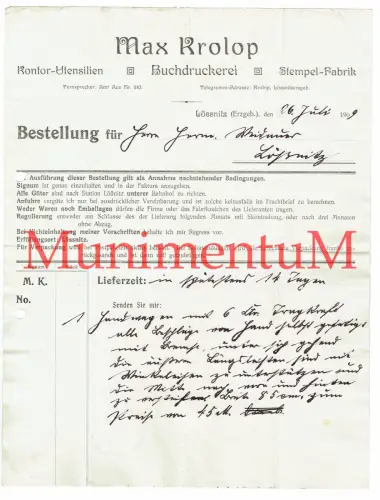 Max Krolop
Kontor-Utensilien Buchdruckerei Stempel-Fabrik
Fernsprecher: Amt Aue Nr. 240. Telegramm-Adresse: Krolop, Lössnitzerzgeb.
Lössnitz (Erzgeb.), den 26 Juli 1909
Bestellung für Herrn Herm. Weidauer
Lößnitz
Ausführung dieser Bestellung gilt als Annahme nachstehender Bedingungen.
Signum ist genau einzuhalten und in der Faktura anzugeben.
Alle Güter sind nach Station Lößnitz unterer Bahnhof zu richten.
Anfuhre vergüte ich nur bei ausdrücklicher Vereinbarung und ist solche keinesfalls im Frachtbrief zu berechnen.
Weder Waren noch Emballagen dürfen die Firma oder das Fabrikzeichen des Lieferanten tragen.
Regulierung entweder am Schlusse des der Lieferung folgenden Monats mit Skontoabzug, oder nach drei Monaten
ohne Abzug.
Bei Nichteinhaltung meiner Vorschriften behalte ich mir Regress vor.
Erfüllungsort Lössnitz.
MunimentuM
M. K. Lieferzeit: in spätestens 14 Tagen
No. Senden Sie mir:
1 Handwagen mit 6 Ctr. Tragkraft
alle Beschläge von Hand selbst gefertigt
mit Bremse, unter sich gehend
die äußern Längsleisten sind mit
Winkeleisen zu unterstützen und
die Mitte nach vorn und hinten
zu Breite 85 cm, zum
Preise von 45 M.